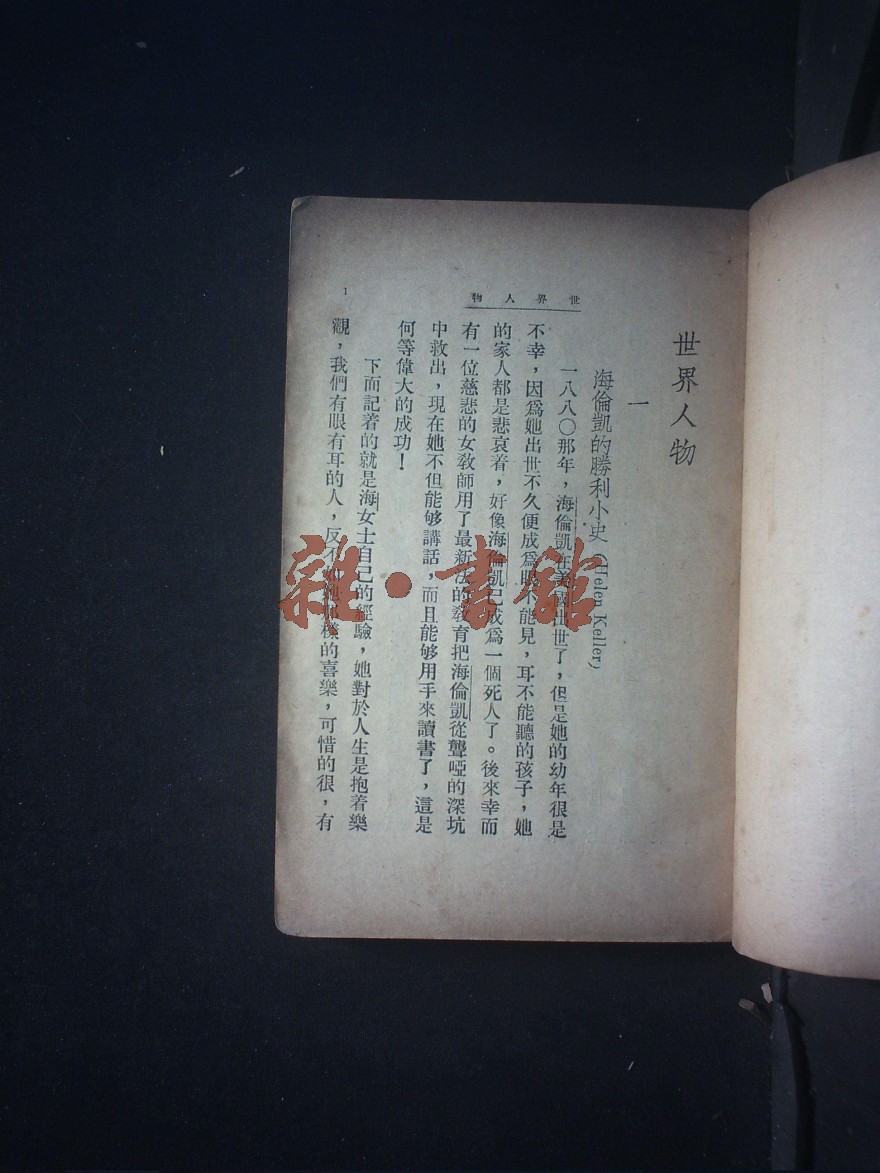 世界人物
一
海倫凱的勝利小史 (Helen Keller)
一八八〇那年，海倫凱在美國出世了，但是她的幼年很是
不幸，因爲她出世不久便成爲眼不能見，耳不能聽的孩子，她
的家人都是悲哀着，好像海倫凱已成爲一個死人了。後來幸而
有一位慈悲的女敎師用了最新法的敎育把海倫凱從聾啞的深坑
中救出，現在她不但能够講話，而且能够用手來讀書了，這是
何等偉大的成功！
下面記着的就是海女士自己的經驗，她對於人生是抱着樂
觀，我們有眼有耳的人，反不那樣的喜樂，可惜的很，有
世界人物
1
雜·書館